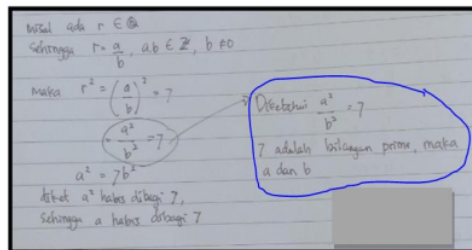 Misal ada r ∈ ℚ
Sehingga r = a/b, a,b ∈ ℤ, b ≠ 0
Maka r² = (a/b)² = 7
= a²/b² = 7
a² = 7b²
diket a² habis dibagi 7,
Sehingga a habis dibagi 7
Diketahui a²/b² = 7
7 adalah bilangan prima, maka
a dan b